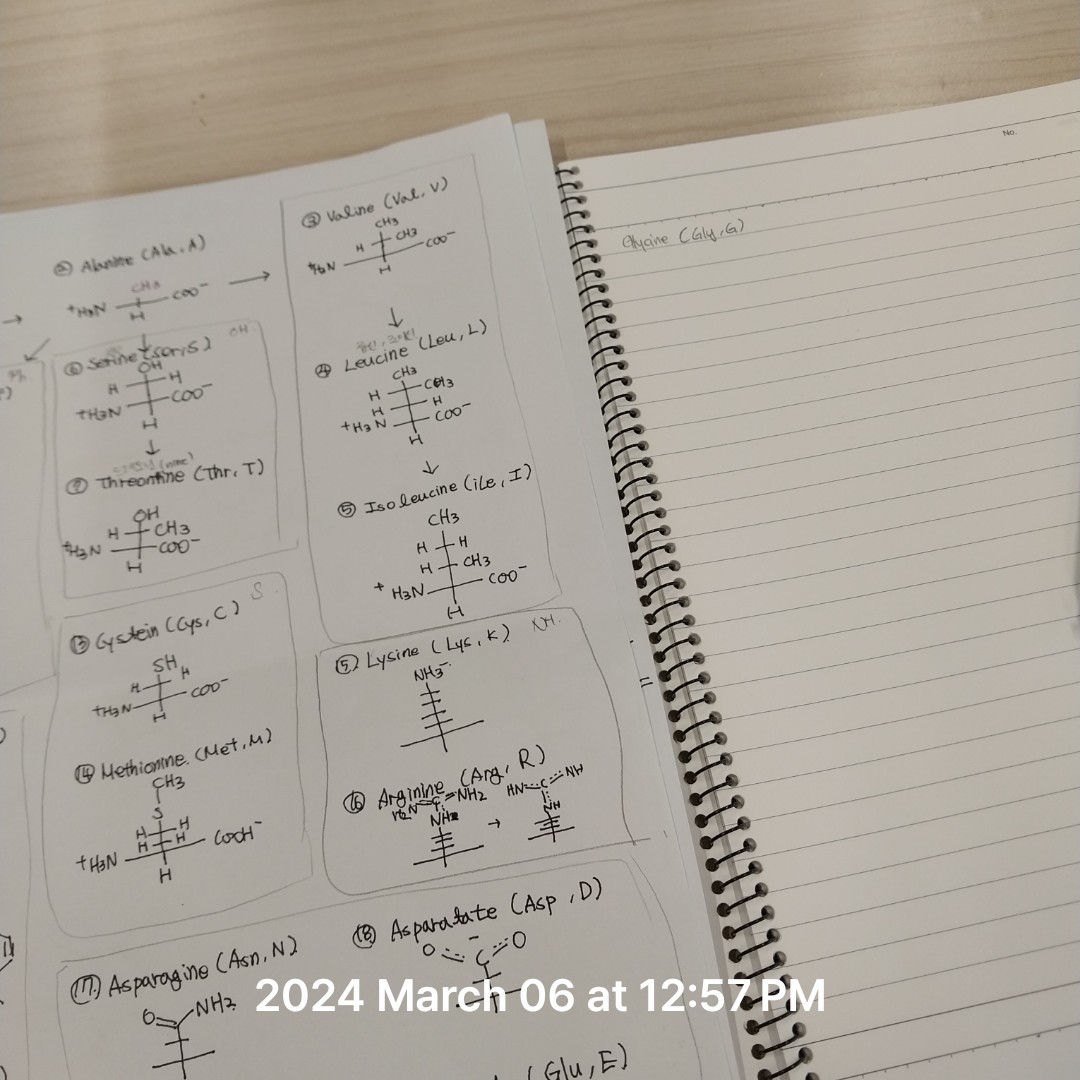 ② Alanine (Ala, A)
CH3
+H3N COO-
H
⑥ Serine (ser, S) OH
OH
H H
+H3N COO-
H
⑦ Threontine (Thr, T)
OH
H CH3
+H3N COO-
H
⑬ Cystein (Cys, C) S
SH
H H
+H3N COO-
H
⑭ Methionine. (Met, M)
CH3
S
H H
H H
+H3N COOH-
H
⑰ Asparagine (Asn, N)
O NH2
③ Valine (Val, V)
CH3
H CH3
+H3N COO-
H
④ Leucine (Leu, L)
CH3
H CH3
H H
+H3N COO-
H
⑤ Isoleucine (ile, I)
CH3
H H
H CH3
+ H3N COO-
H
⑤ Lysine (Lys, K) NH.
NH3-
⑯ Arginine (Arg, R)
H2N C NH2 HN C NH
NH2 → NH
⑱ Asparatate (Asp, D)
O C O
(Glu, E)
No.
Glycine (Gly, G)
2024 March 06 at 12:57 PM